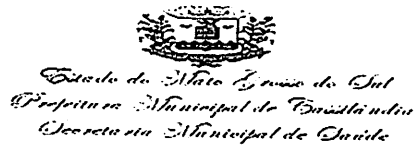 Estado do Mato Grosso do Sul
Prefeitura Municipal de Cassilândia
Secretaria Municipal de Saúde